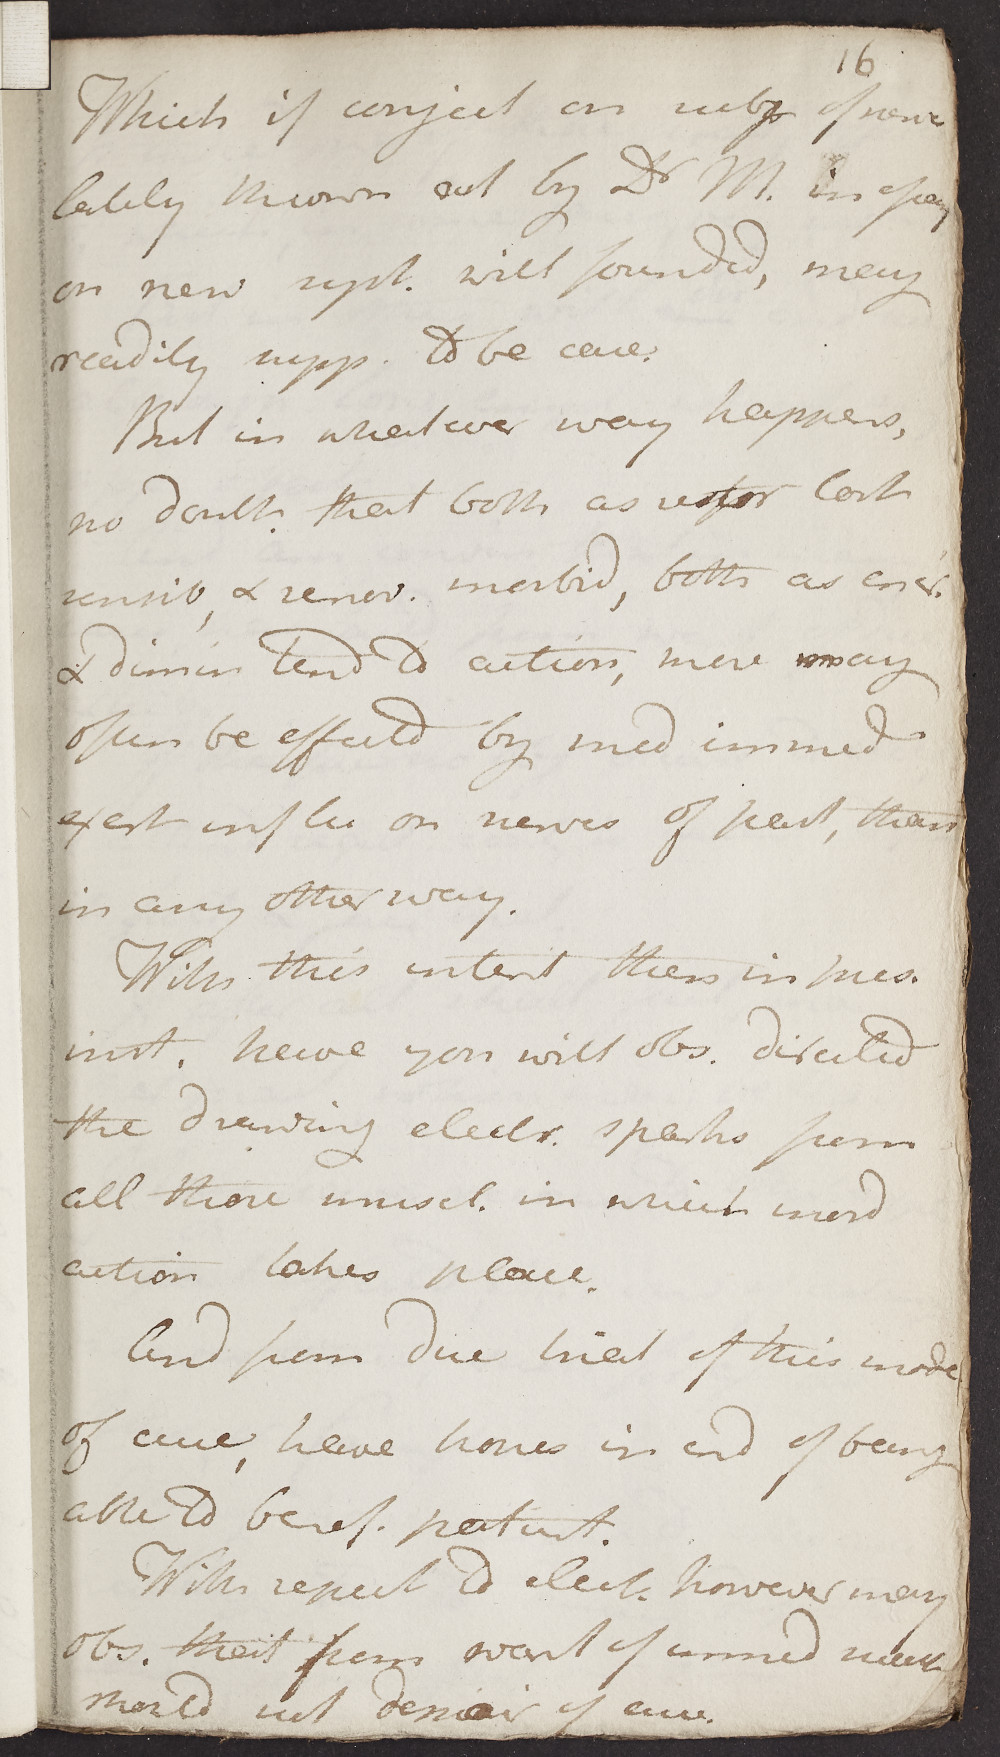 16
Which if conject on subj of nerve
lately thrown out by Dr M. in
on new supt. well founded, may
readily supp. to be case.
But in whatever way happens,
no doubt that both as restor lost
sensib, & remov. morbid, both as incr.
& dimin tend to action, more may
often be effected by med immed
exert influ on nerves of part, than
in any other way.
With this intent then in pres.
inst. have you will obs. directed
the drawing electr. sparks from
all those muscl. in which inord
action takes place.
And from due trial of this mode
of cure, have hopes in end of being
able to benef. patient.
With respect to elect. however may
obs. that from want of immed succ
should not despair of cure.